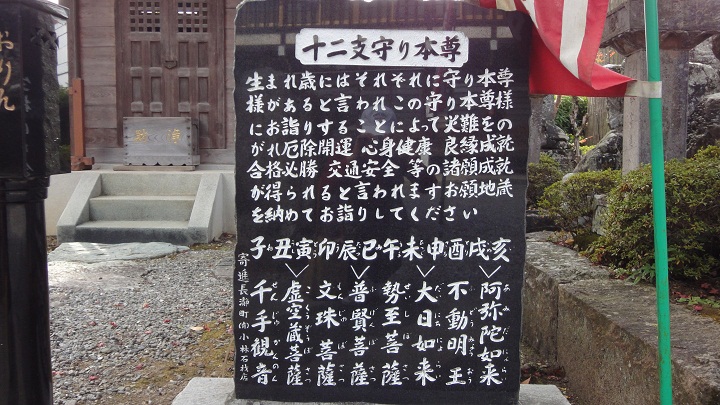 十二支守り本尊
生まれ歳にはそれぞれに守り本尊
様があると言われこの守り本尊様
にお詣りすることによって災難をの
がれ厄除開運 心身健康 良縁成就
合格必勝 交通安全 等の諸願成就
が得られると言われますお願地蔵
を納めてお詣りしてください
子 丑 寅 卯 辰 巳 午 未 申 酉 戌 亥
千手観音
虚空蔵菩薩
文珠菩薩
普賢菩薩
勢至菩薩
大日如来
不動明王
阿弥陀如来
寄進長瀞町㈲小林石材店